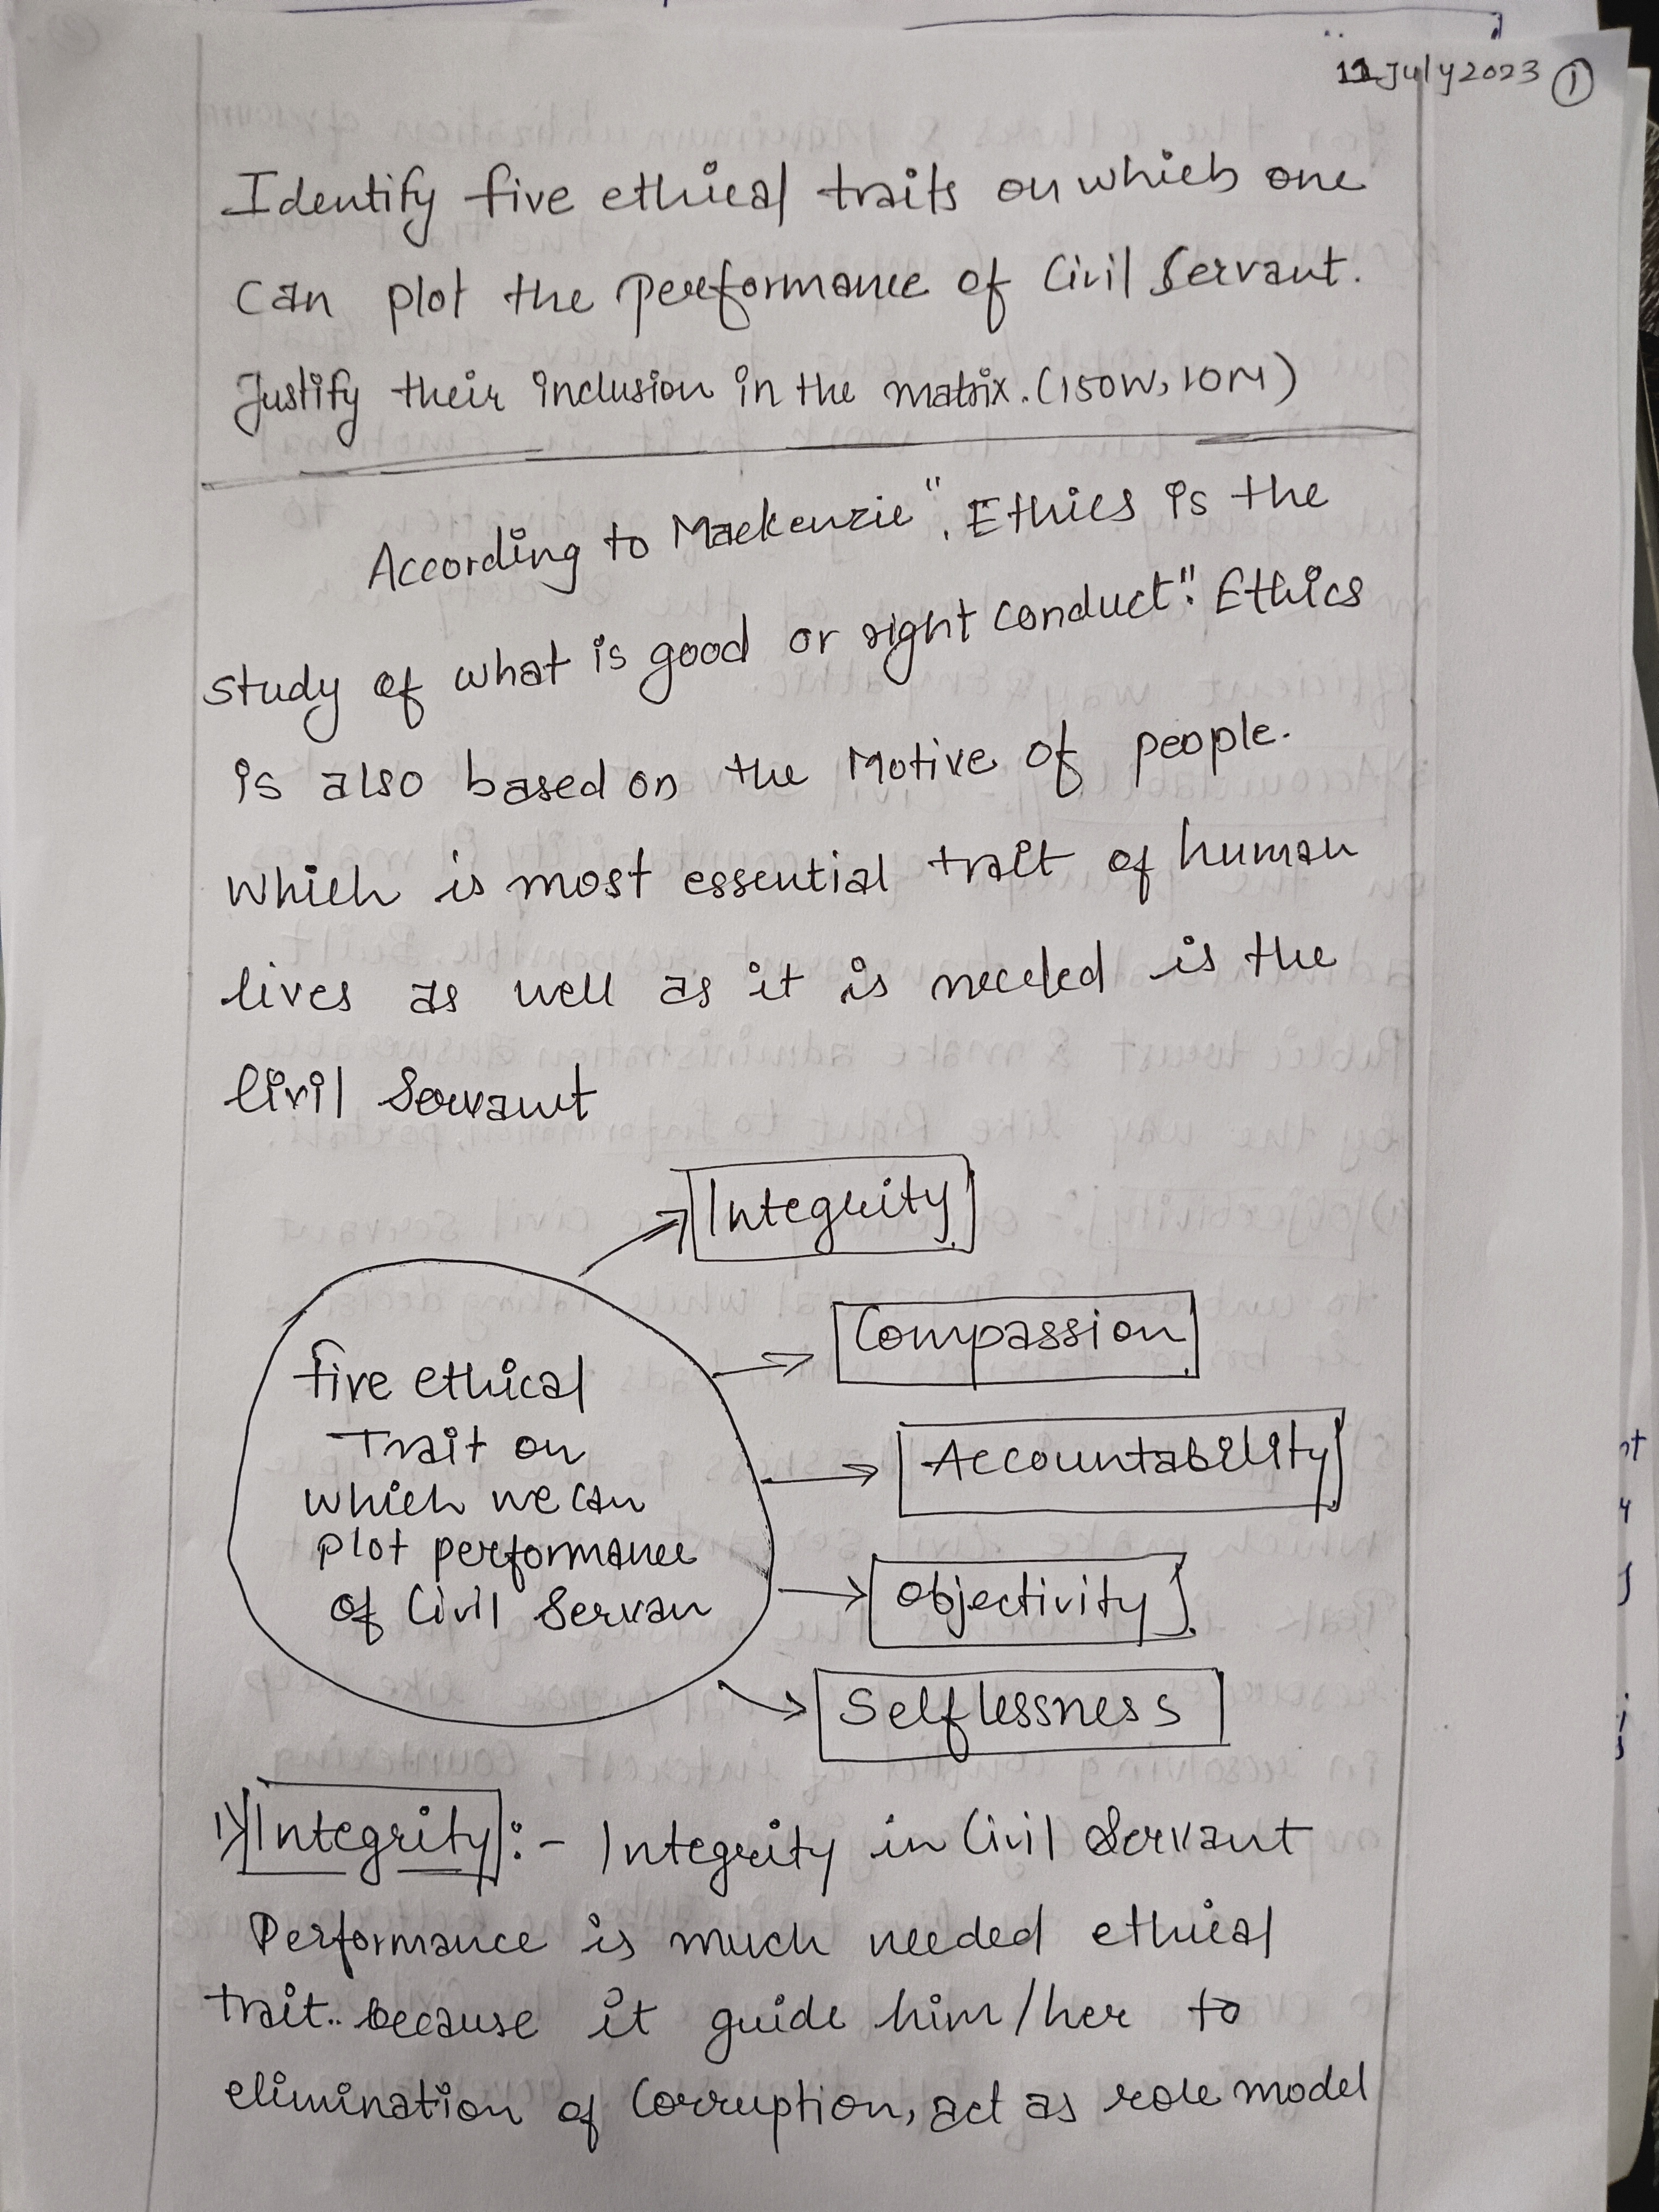 11 July 2023 1
Identify five ethical traits on which one
can plot the performance of Civil Servant.
Justify their inclusion in the matrix. (150W, 10M)
According to Mackenzie ". Ethics is the
study of what is good or right conduct". Ethics
is also based on the Motive of people.
which is most essential trait of human
lives as well as it is needed is the
Civil Servant
Integrity
Compassion
Accountability
Objectivity
Selflessness
five ethical
Trait on
which we can
plot performance
of Civil Servan
1) Integrity :- Integrity in Civil Servant
Performance is much needed ethical
trait.. because it guide him/her to
elimination of Corruption, act as role model